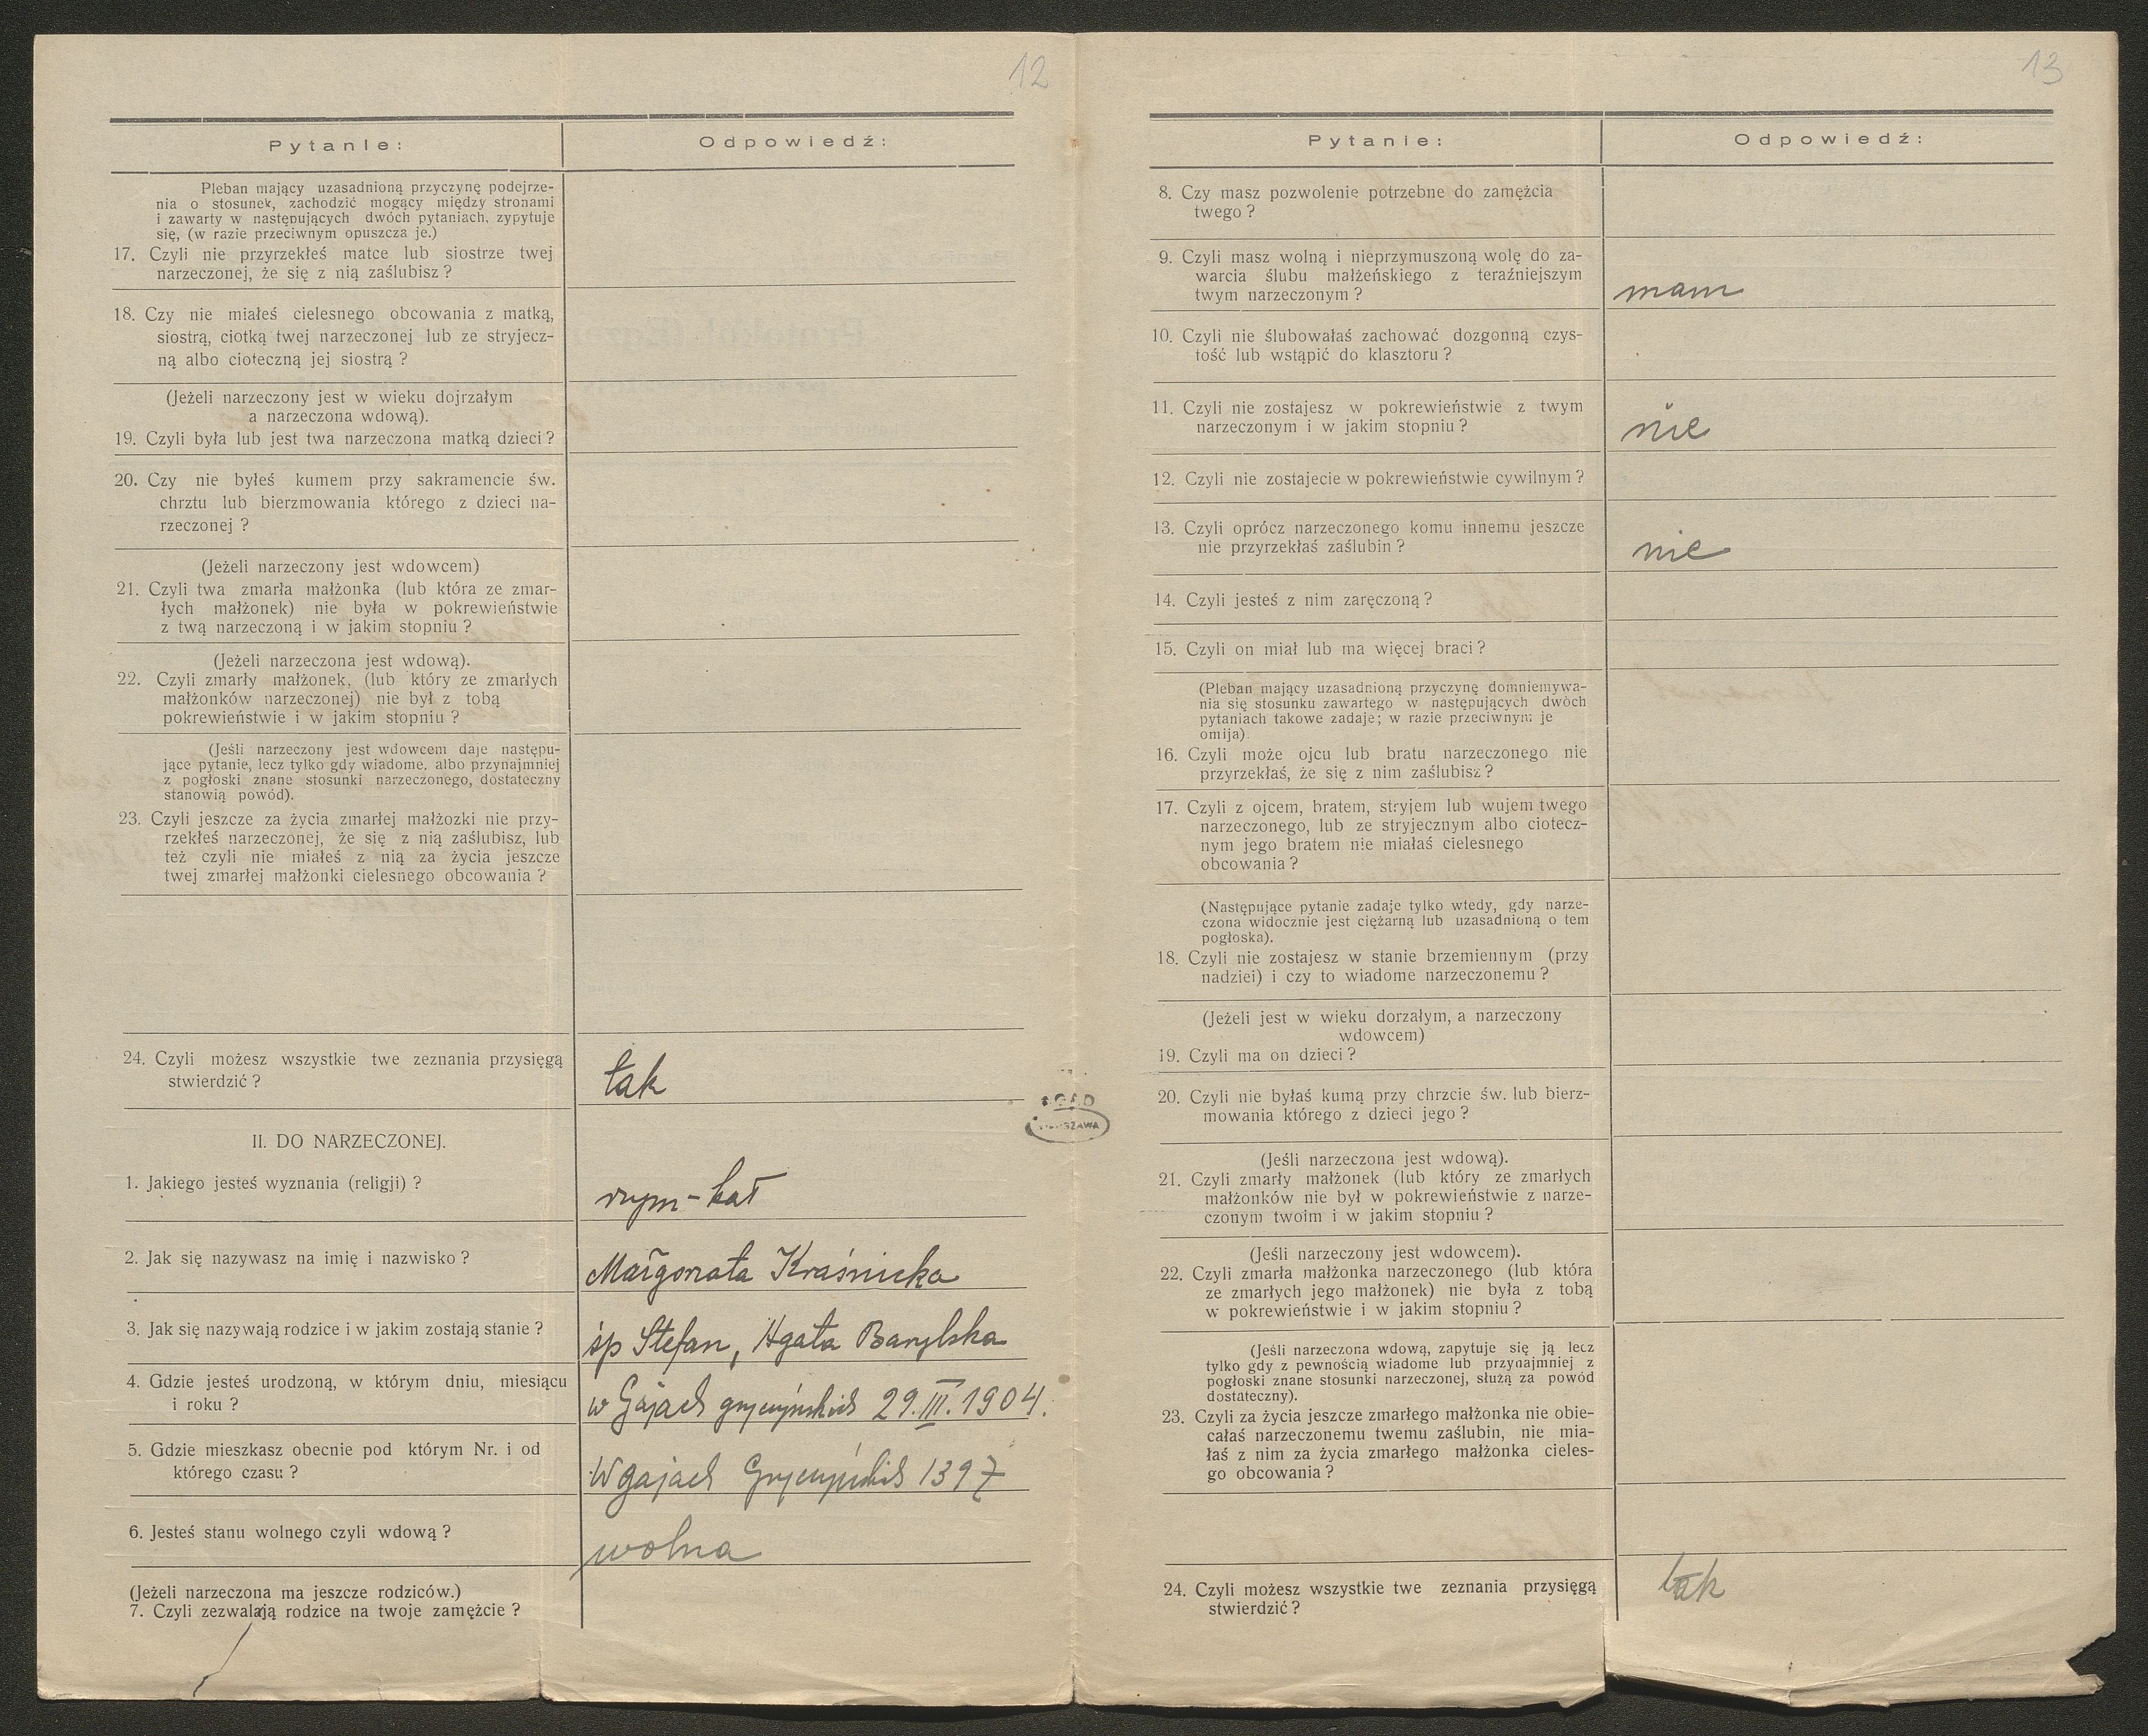 12
Pytanie:
Odpowiedź:
Pleban mający uzasadnioną przyczynę podejrze-
nia o stosunek, zachodzić mogący między stronami
i zawarty w następujących dwóch pytaniach, zypytuje
się, (w razie przeciwnym opuszcza je.)
17. Czyli nie przyrzekłeś matce lub siostrze twej
narzeczonej, że się z nią zaślubisz ?
18. Czy nie miałeś cielesnego obcowania z matką,
siostrą, ciotką twej narzeczonej lub ze stryjecz-
ną albo cioteczną jej siostrą ?
(Jeżeli narzeczony jest w wieku dojrzałym
a narzeczona wdową).
19. Czyli była lub jest twa narzeczona matką dzieci ?
20. Czy nie byłeś kumem przy sakramencie św.
chrztu lub bierzmowania którego z dzieci na-
rzeczonej ?
(Jeżeli narzeczony jest wdowcem)
21. Czyli twa zmarła małżonka (lub która ze zmar-
łych małżonek) nie była w pokrewieństwie
z twą narzeczoną i w jakim stopniu ?
(Jeżeli narzeczona jest wdową).
22. Czyli zmarły małżonek, (lub który ze zmarłych
małżonków narzeczonej) nie był z tobą
pokrewieństwie i w jakim stopniu ?
(Jeśli narzeczony jest wdowcem daje następu-
jące pytanie, lecz tylko gdy wiadome, albo przynajmniej
z pogłoski znane stosunki narzeczonego, dostateczny
stanowią powód).
23. Czyli jeszcze za życia zmarłej małżozki nie przy-
rzekłeś narzeczonej, że się z nią zaślubisz, lub
też czyli nie miałeś z nią za życia jeszcze
twej zmarłej małżonki cielesnego obcowania ?
24. Czyli możesz wszystkie twe zeznania przysięgą
stwierdzić ?
tak
II. DO NARZECZONEJ.
1. Jakiego jesteś wyznania (religji) ?
rzym-kat
2. Jak się nazywasz na imię i nazwisko ?
Małgorzata Kraśnicka
3. Jak się nazywają rodzice i w jakim zostają stanie ?
śp Stefan, Agata Barylska
4. Gdzie jesteś urodzoną, w którym dniu, miesiącu
i roku ?
w Gajach gryczyńskich 29.III.1904.
5. Gdzie mieszkasz obecnie pod którym Nr. i od
którego czasu ?
W gajach Gryczyńskich 1397
6. Jesteś stanu wolnego czyli wdową ?
wolna
(Jeżeli narzeczona ma jeszcze rodziców.)
7. Czyli zezwalają rodzice na twoje zamężcie ?
AGAD
WARSZAWA
13
Pytanie:
Odpowiedź:
8. Czy masz pozwolenie potrzebne do zamężcia
twego ?
9. Czyli masz wolną i nieprzymuszoną wolę do za-
warcia ślubu małżeńskiego z teraźniejszym
twym narzeczonym ?
mam
10. Czyli nie ślubowałaś zachować dozgonną czys-
tość lub wstąpić do klasztoru ?
11. Czyli nie zostajesz w pokrewieństwie z twym
narzeczonym i w jakim stopniu ?
nie
12. Czyli nie zostajecie w pokrewieństwie cywilnym ?
13. Czyli oprócz narzeczonego komu innemu jeszcze
nie przyrzekłaś zaślubin ?
nie
14. Czyli jesteś z nim zaręczoną ?
15. Czyli on miał lub ma więcej braci ?
(Pleban mający uzasadnioną przyczynę domniemywa-
nia się stosunku zawartego w następujących dwóch
pytaniach takowe zadaje; w razie przeciwnym je
omija).
16. Czyli może ojcu lub bratu narzeczonego nie
przyrzekłaś, że się z nim zaślubisz ?
17. Czyli z ojcem, bratem, stryjem lub wujem twego
narzeczonego, lub ze stryjecznym albo ciotecz-
nym jego bratem nie miałaś cielesnego
obcowania ?
(Następujące pytanie zadaje tylko wtedy, gdy narze-
czona widocznie jest ciężarną lub uzasadnioną o tem
pogłoska).
18. Czyli nie zostajesz w stanie brzemiennym (przy
nadziei) i czy to wiadome narzeczonemu ?
(Jeżeli jest w wieku dorzałym, a narzeczony
wdowcem)
19. Czyli ma on dzieci ?
20. Czyli nie byłaś kumą przy chrzcie św. lub bierz-
mowania którego z dzieci jego ?
(Jeśli narzeczona jest wdową).
21. Czyli zmarły małżonek (lub który ze zmarłych
małżonków nie był w pokrewieństwie z narze-
czonym twoim i w jakim stopniu ?
(Jeśli narzeczony jest wdowcem).
22. Czyli zmarła małżonka narzeczonego (lub która
ze zmarłych jego małżonek) nie była z tobą
w pokrewieństwie i w jakim stopniu ?
(Jeśli narzeczona wdową, zapytuje się ją lecz
tylko gdy z pewnością wiadome lub przynajmniej z
pogłoski znane stosunki narzeczonej, służą za powód
dostateczny).
23. Czyli za życia jeszcze zmarłego małżonka nie obie-
całaś narzeczonemu twemu zaślubin, nie mia-
łaś z nim za życia zmarłego małżonka cieles-
go obcowania ?
24. Czyli możesz wszystkie twe zeznania przysięgą
stwierdzić ?
tak